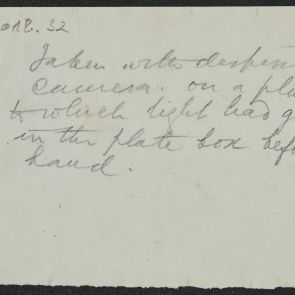 018.32
Taken with despin
camera. on a pla
to which light had g
in the plate box bef
hand.